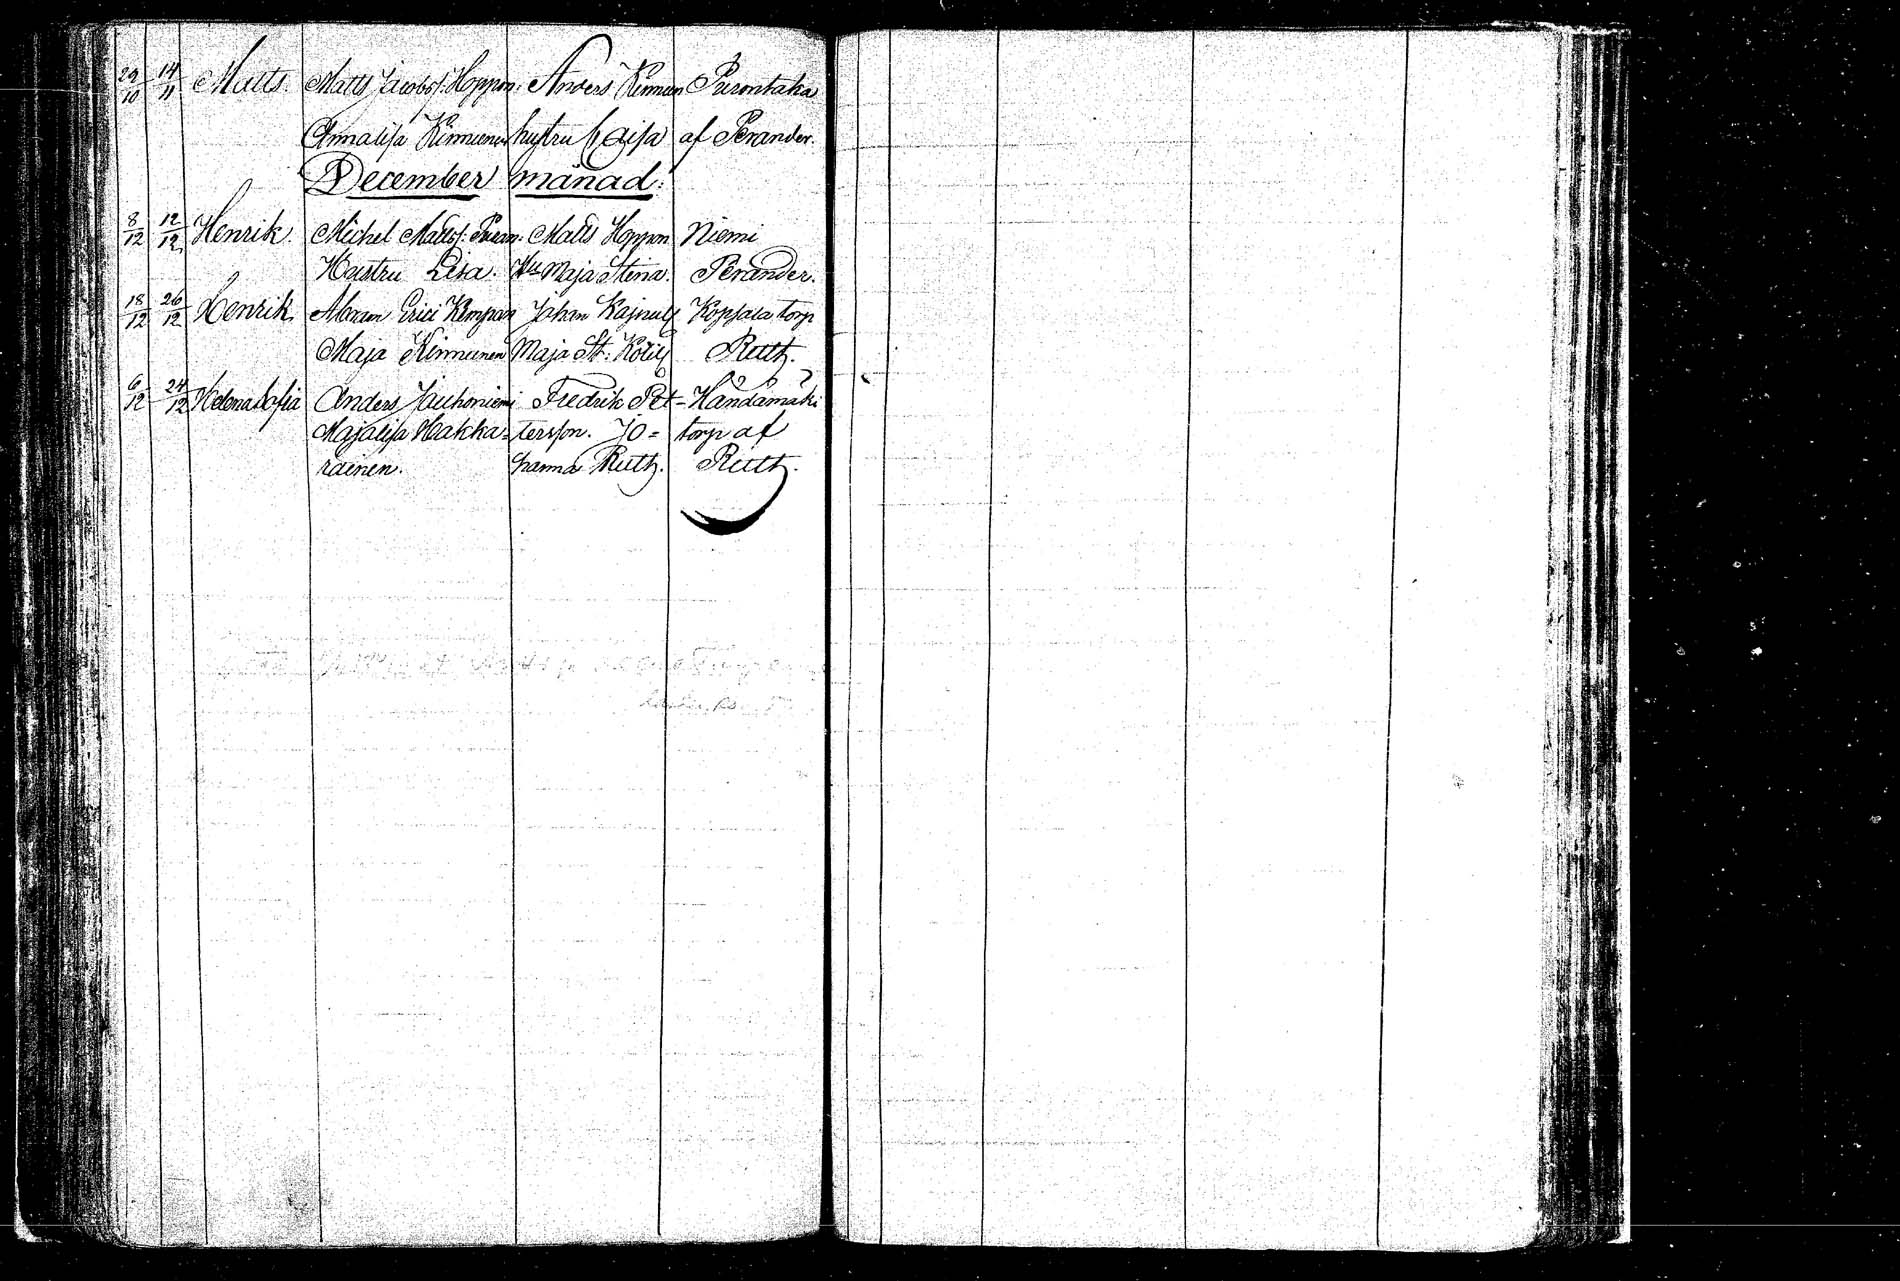 29/10 14/11 Matts. Matts Jacobss: Hoppon: Anders Kinnun Purontaka
Annalisa Kinnunen hustru Caisa af Perander.
December månad:
8/12 12/12 Henrik. Michel Mattss: Matts Hoppon Niemi
Hustru Lisa. Hu Maja Stina. Perander.
18/12 26/12 Henrik Abram Erici Kempan Johan Koppala torp
Maja Kinnunen Maja St: Ruth.
6/12 24/12 Helena Sofia Anders Jauhoniemi Fredrik Pet= Händämäki
Majalisa Hakka= tersson. Jo= torp af
rainen. hanna Ruth. Ruth.